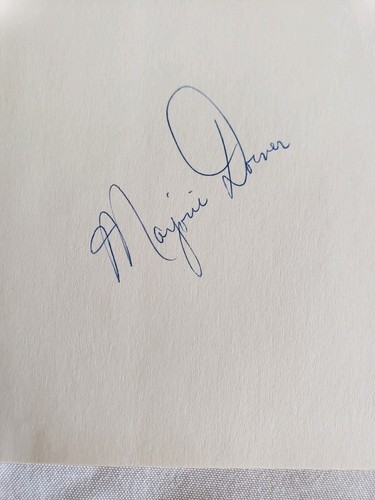 Marjorie Dorner